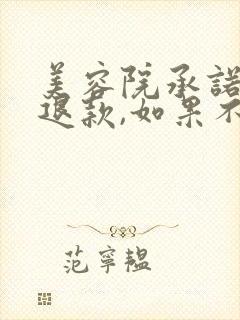 美容院承諾
退款,如果不
范寧韞